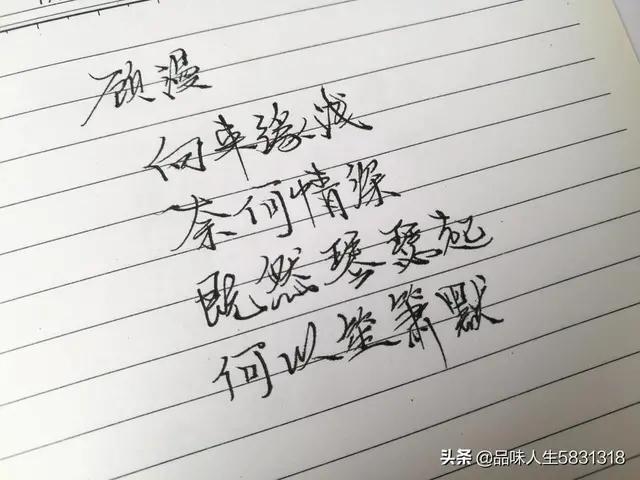 顾漫
向来缘浅
奈何情深
既然琴瑟起
何以笙箫默
头条 @品味人生5831318